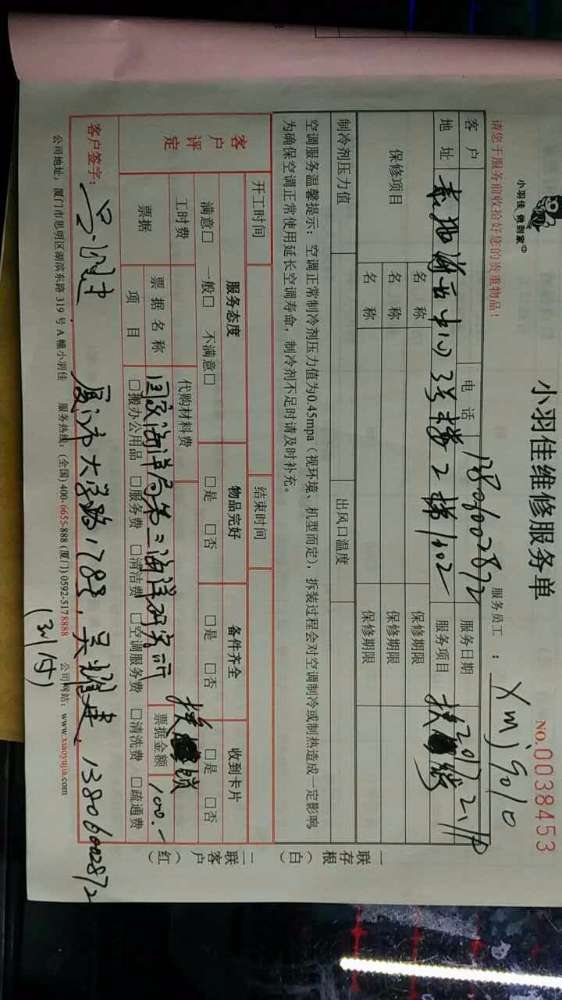 小羽佳 携到家
小羽佳维修服务单
NO.0038453
请您于服务前收拾好您的贵重物品！
服务员工：Xmj9010
客户
电话
13806002872
服务日期
2017.2.11
地址
3号楼2梯1102
服务项目
保修项目
名称
保修期限
名称
保修期限
名称
保修期限
制冷剂压力值
出风口温度
空调服务温馨提示：空调正常制冷剂压力值为0.45mpa（视环境、机型而定），拆装过程会对空调制冷或制热造成一定影响，
为确保空调正常使用延长空调寿命，制冷剂不足时请及时补充。
一存根（白）联
开工时间
结束时间
客户评定
服务态度
物品完好
备件齐全
收到卡片
满意□ 一般□ 不满意□
□是 □否
□是 □否
□是 □否
工时费
代购材料费
票据
票据名称
国家海洋局第三海洋研究所
票据金额
100.-
项目
□搬办公用品 □服务费 □清洁费 □空调服务费 □清洗费 □疏通费
二客户（红）联
客户签字：
厦门市大学路178号，吴耀建，13806002872
公司地址：厦门市思明区湖滨东路319号A幢小羽佳 服务热线：(全国)400-6655-888 (厦门)0592-5178888 公司网站：www.xiaoyujia.com